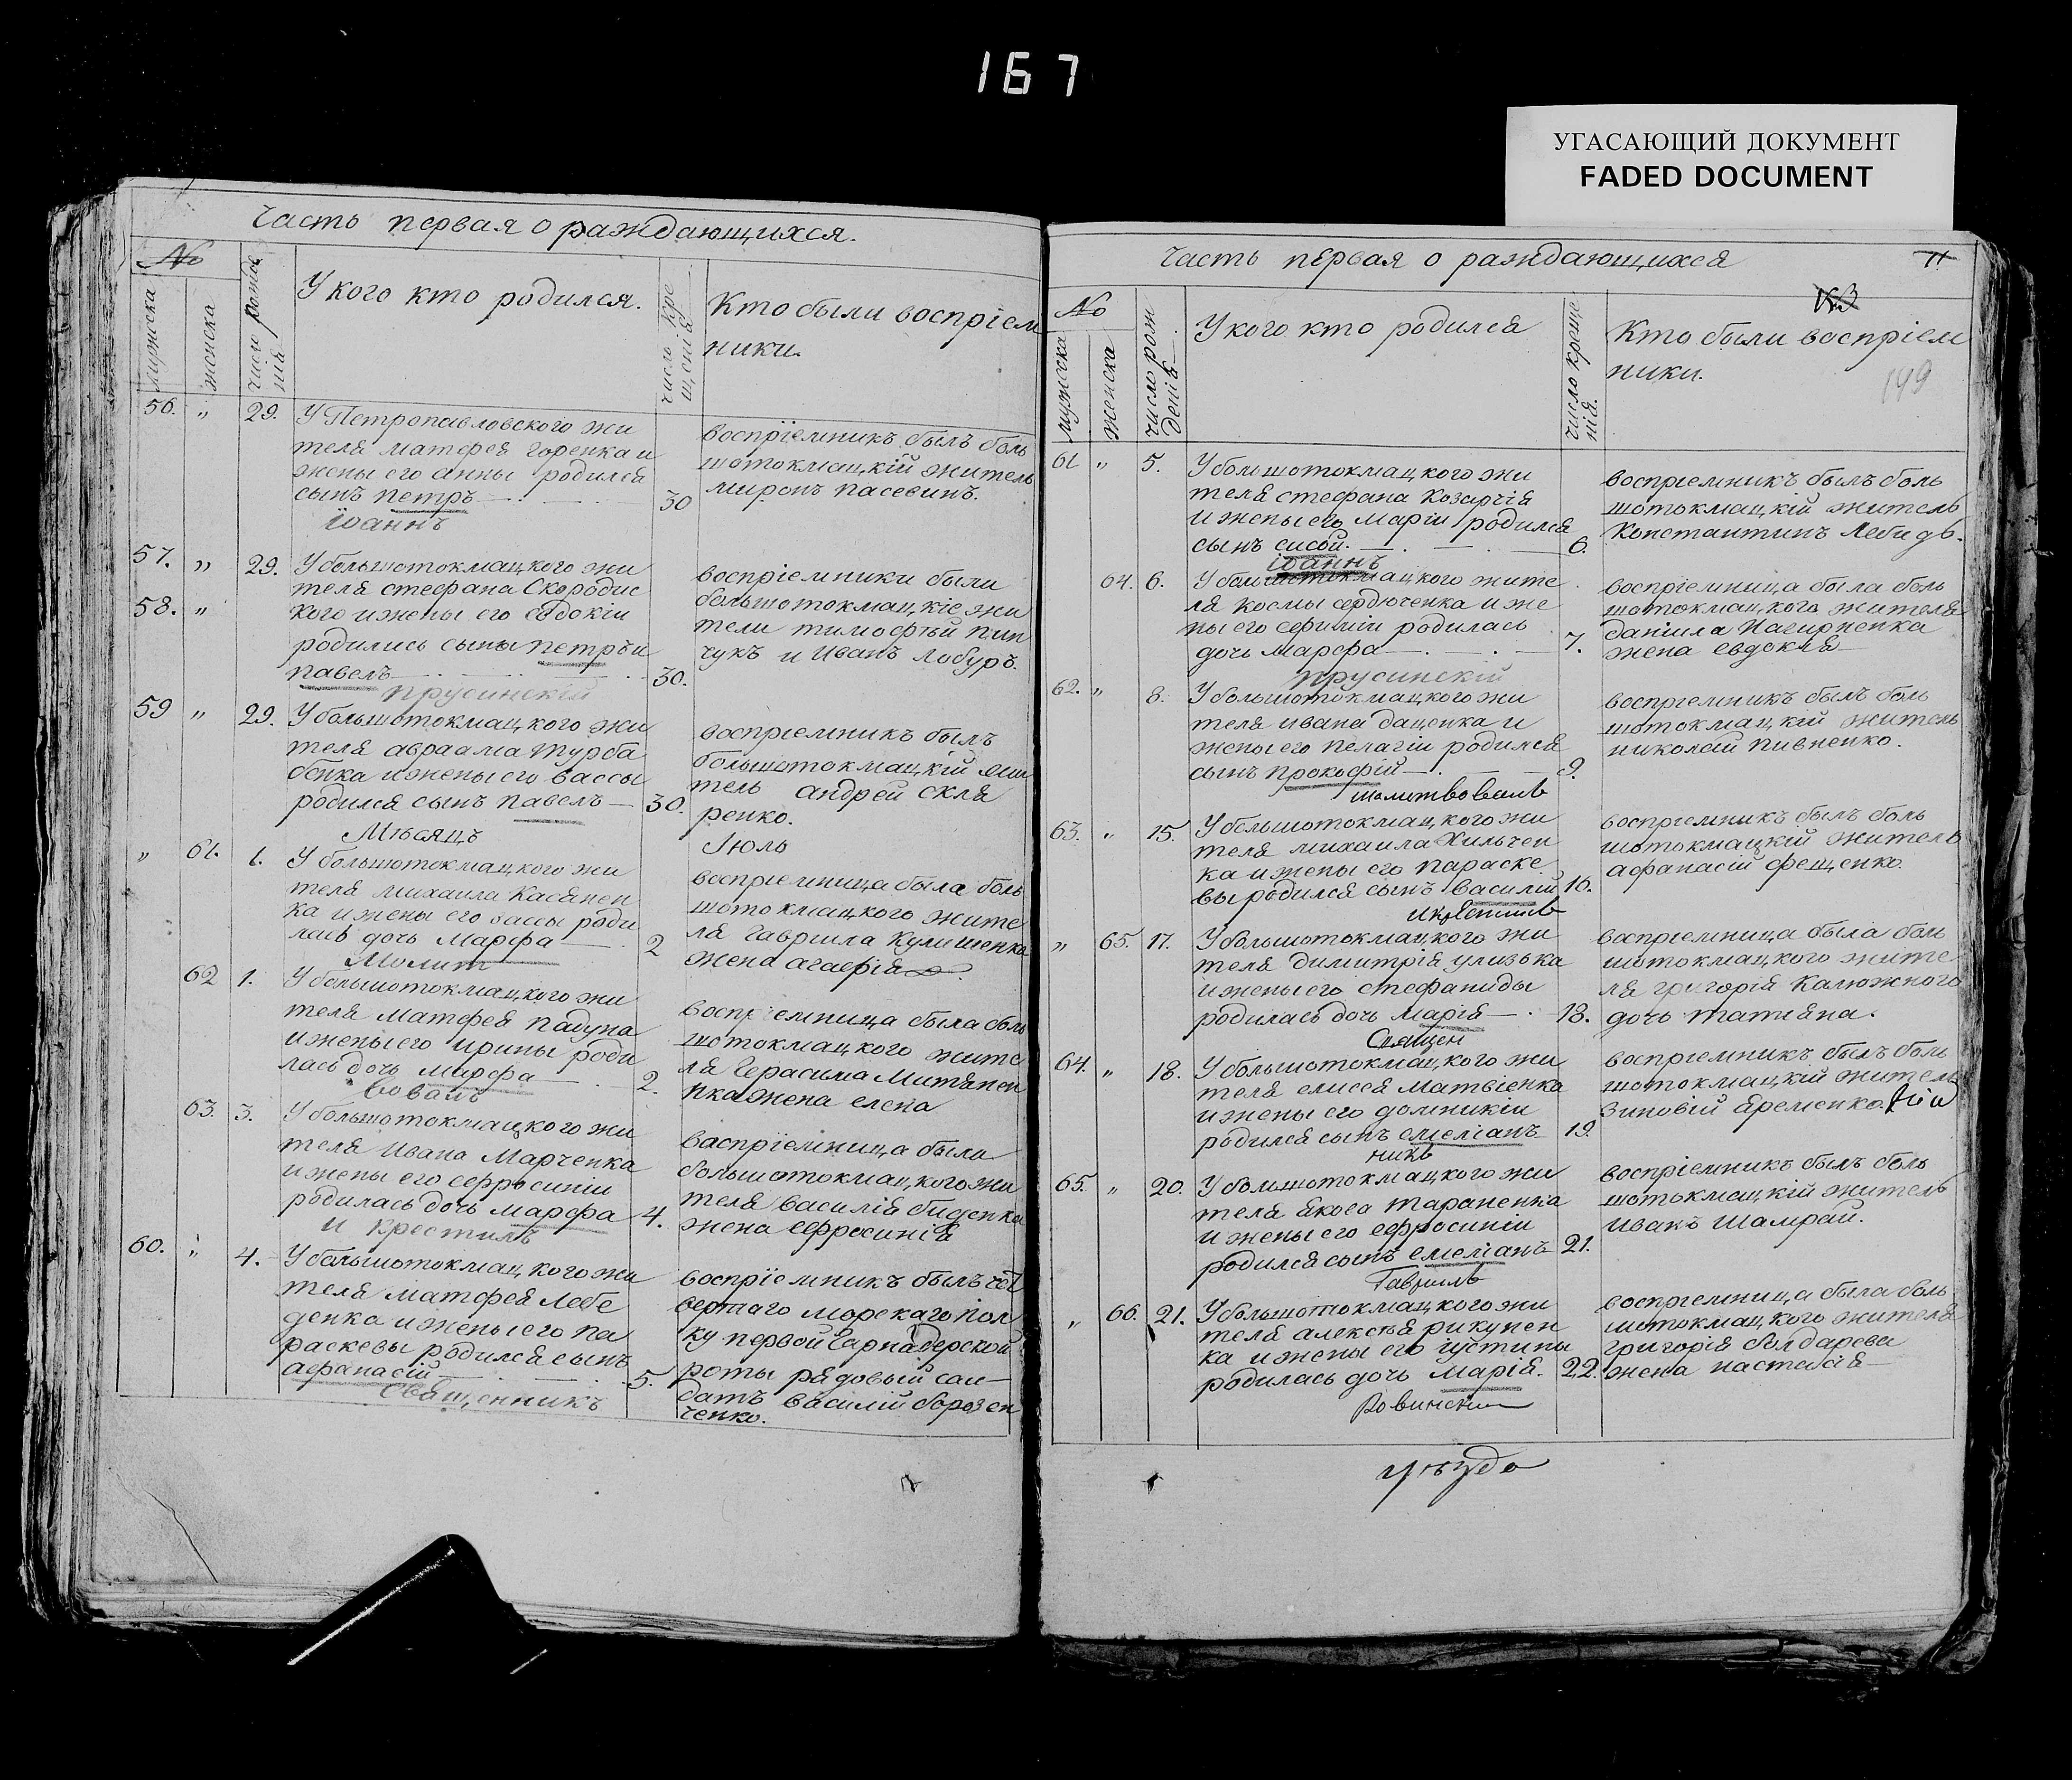 167
УГАСАЮЩИЙ ДОКУМЕНТ
FADED DOCUMENT
Часть первая о раждающихся.
№
мужска
женска
число рожде
нія
У кого кто родился.
число кре
щенія
Кто были воспріем
ники.
56. „ 29. У Петропавловского жи
теля матфея горенка и
жены его анны родился
сынъ петръ 30
воспріемникъ былъ боль
шотокмацкій житель
миронъ пасевинъ.
іоаннъ
57. „ 29. У большотокмацкого жи
теля стефана Скородис
58. „ кого и жены его евдокіи
родились сыны петръ и
павелъ 30.
воспріемники были
большотокмацкіе жи
тели тимофѣй пин
чукъ и Иванъ лобуръ.
прусинскій
59 „ 29. У большотокмацкого жи
теля авраама турба
бенка и жены его вассы
родился сынъ павелъ 30.
воспріемникъ былъ
большотокмацкій жи
тель андрей скля
ренко.
Мѣсяцъ Іюль
„ 61. 1. У большотокмацкого жи
теля михаила Касянен
ка и жены его вассы роди
лась дочь Марфа 2
воспріемница была боль
шотокмацкого жите
ля гавриила Кулишенка
жена агафія
Молит
62 1. У большотокмацкого жи
теля Матфея падуна
и жены его ирины роди
лась дочь Марфа 2.
воспріемница была боль
шотокмацкого жите
ля герасима Митянен
пка жена елена
вовалъ
63. 3. У большотокмацкого жи
теля Ивана Марченка
и жены его ефросиніи
родилась дочь марфа 4.
васпріемница была
большотокмацкого жи
теля василія биденка
жена ефросинія
и крестилъ
60. „ 4. У большотокмацкого жи
теля матфея Лебе
денка и жены его па
раскевы родился сынъ
афанасій 5.
воспріемникъ былъ чет
вертаго морскаго пол
ку первой Гарнадерской
роты рядовый сал
датъ василій борозен
ченко.
священникъ
Часть первая о раждающихся
71
№
мужска
женска
число рож
денія
У кого кто родился
число креще
нія.
Кто были воспріем
ники.
199
61 „ 5. У большотокмацкого жи
теля стефана Козарчія
и жены его Маріи родился
сынъ сисой. 6.
воспріемникъ былъ боль
шотокмацкій житель
Константинъ Лебидь.
іоаннъ
64. 6. У большотокмацкого жите
ля космы сердюченка и же
ны его ефиміи родилась
дочь Марфа 7.
воспріемница была боль
шотокмацкого жителя
даніила Нагирненка
жена евдокія
прусинскій
62. „ 8. У большотокмацкого жи
теля ивана даценка и
жены его пелагіи родился
сынъ прокофій 9.
воспріемникъ былъ боль
шотокмацкій житель
николай пивненко.
молитвовалъ
63. „ 15. У большотокмацкого жи
теля михаила Хильчен
ка и жены его параске
вы родился сынъ василій 16.
воспріемникъ былъ боль
шотокмацкій житель
афанасій фещенко.
и крестилъ
„ 65. 17. У большотокмацкого жи
теля димитрія улизька
и жены его стефаниды
родилась дочь марія 18.
воспріемница была боль
шотокмацкого жите
ля григорія Калюжного
дочь татіяна.
Священ
64. „ 18. У большотокмацкого жи
теля елисея матвіенка
и жены его домникіи
родился сынъ емеліанъ 19.
воспріемникъ былъ боль
шотокмацкій житель
зиновій Яременко.
никъ
65. „ 20. У большотокмацкого жи
теля якова тараненка
и жены его ефросиніи
родился сынъ емеліанъ 21.
воспріемникъ былъ боль
шотокмацкій житель
иванъ Шамрай.
Гавриилъ
„ 66. 21. У большотокмацкого жи
теля алексѣя рикунен
ка и жены его іустины
родилась дочь марія. 22.
воспріемница была боль
шотокмацкого жителя
григорія болдарева
жена настасія
Ровинский
уѣзда